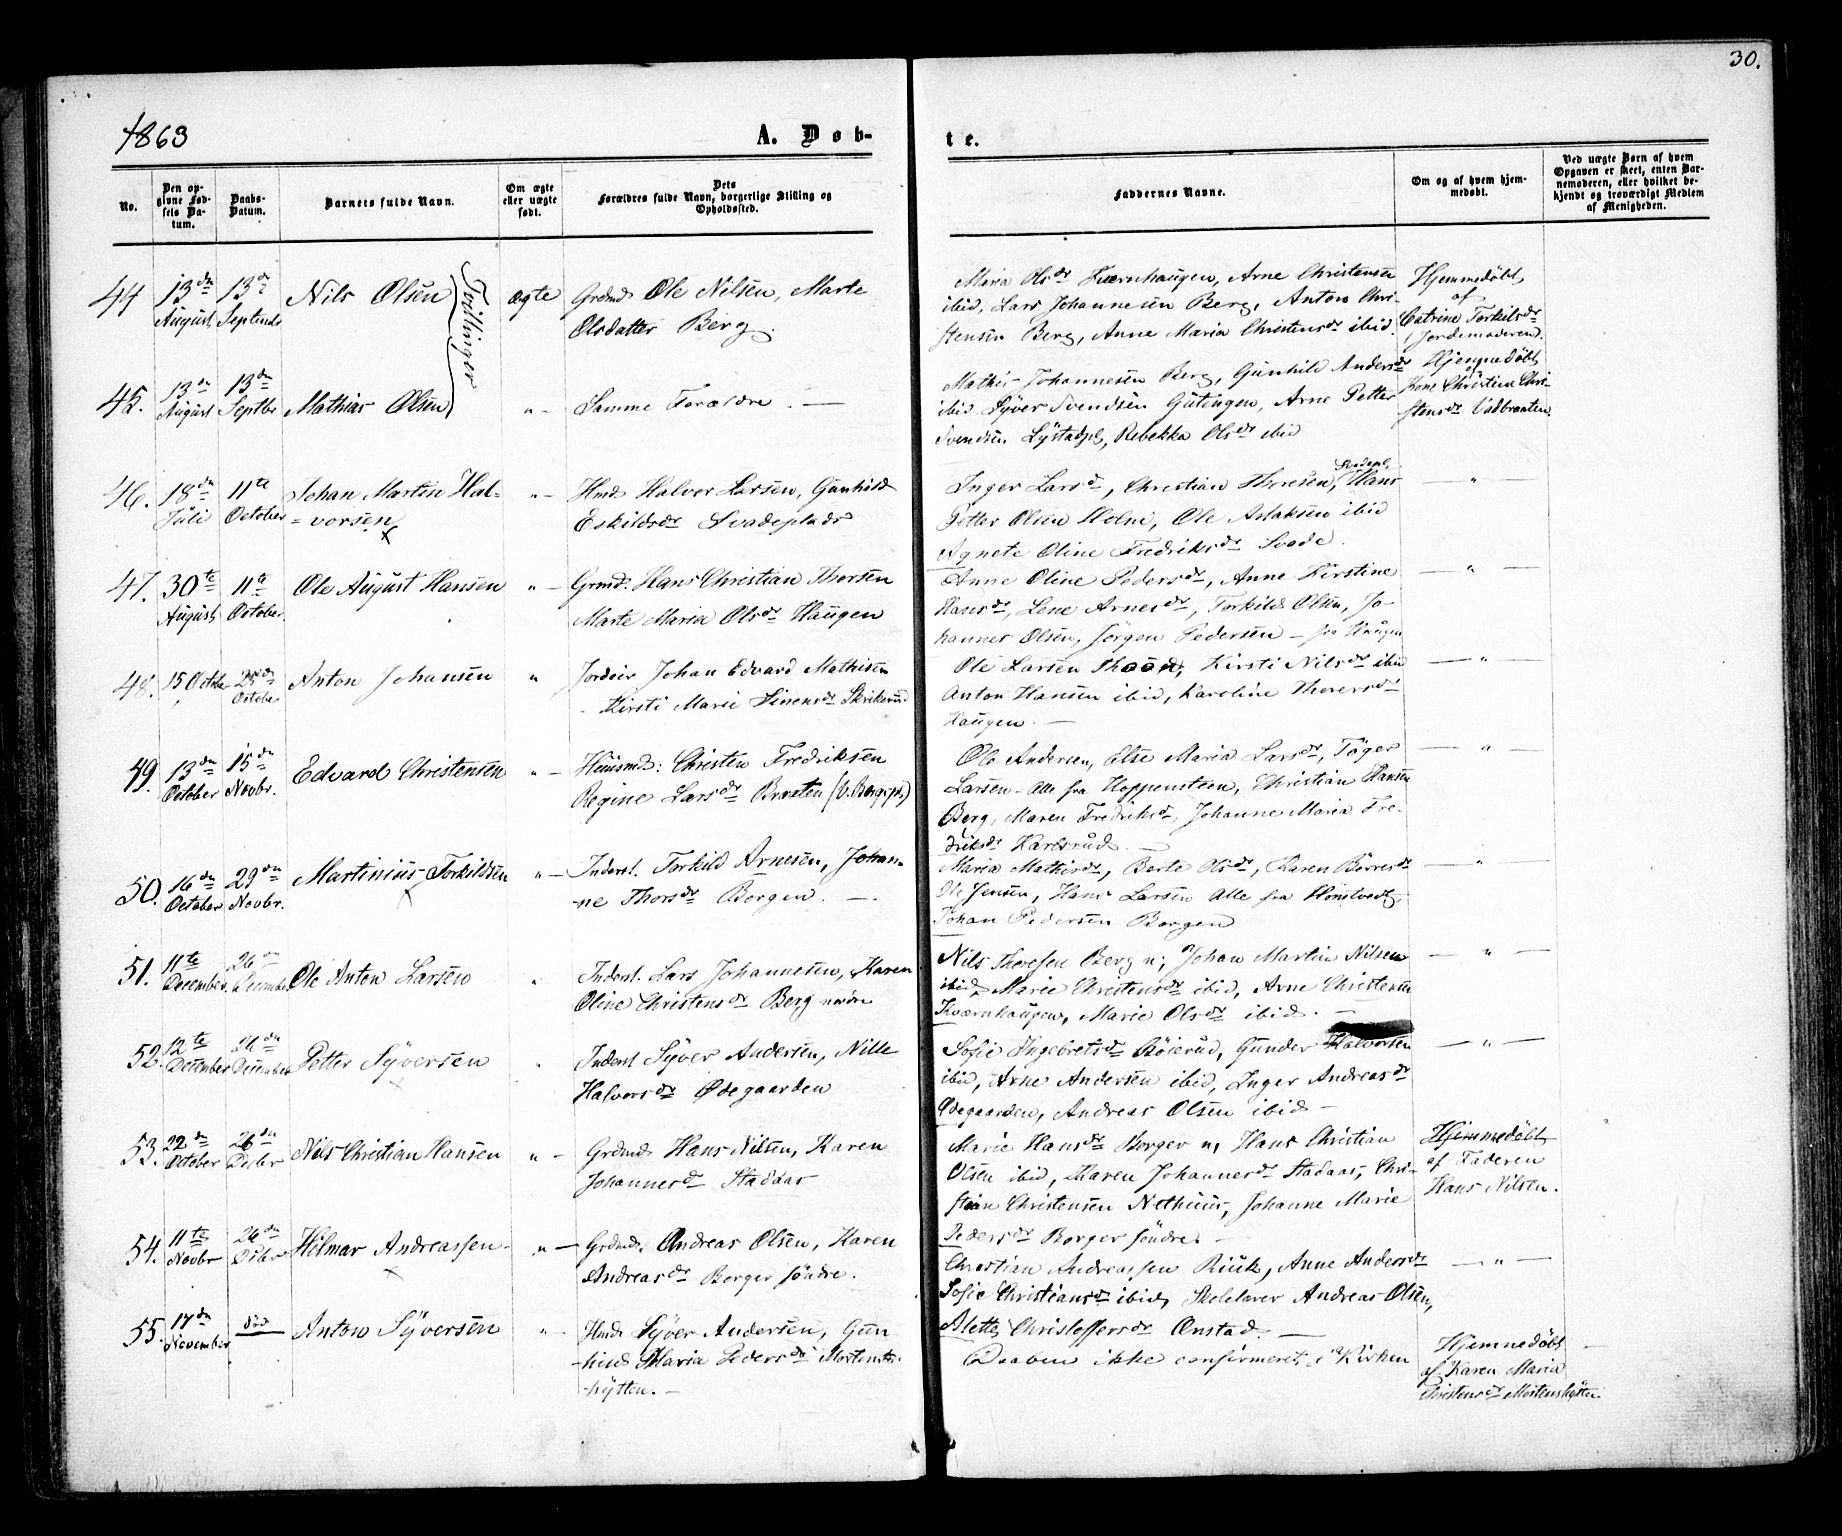 30.
1863
A. Døb-
te.
No.
Den op-
givne Fød-
sels Da-
tum.
Daabs-
Datum.
Barnets fulde Navn.
Om ægte
eller uægte
født.
Dets
Forældres fulde Navn, borgerlige Stilling og
Opholdssted.
Faddernes Navne.
Om og af hvem hjem-
medøbt.
Ved uægte Børn af hvem
Opgaven er skeet, enten Bar-
nemoderen, eller hvilket be-
kjendt og troværdigt Medlem
af Menigheden.
44 13de August 13de Septembr Nils Olsen Tvillinger ægte Grdmd. Ole Nilsen, Marte
Olsdatter Berg.
Maria Olsdr Kværnhaugen, Arne Christensen
ibid, Lars Johannesen Berg, Anton Chri-
stensen Berg, Anne Maria Christensdr ibid.
Hjemmedøbt
af
Catrine Torkilsdr
Jordemoderen.
45. 13de August 13de Septbr Mathias Olsen " - Samme Forældre. —
Mathis Johannesen Berg, Gunhild Andersdr
ibid Syver Svendsen Gutingen, Arne Petter
Svendsen Lystadpl, Rebekka Olsdr ibid
Hjemmedøbt
af
Kone Christine Chri-
stensdr Vadbraaten.
46. 18de Juli 11te October Johan Martin Hal-
-vorsen " - Hmd Halvor Larsen, Gunhild
Eskildsdr Svadeplads
Inger Larsdr, Christian Thoresen, Svadepl. Hans
Petter Olsen Holm, Ole Aslaksen ibid
Agnete Oline Fredriksdr Svade.
— " —
47. 30te August 11te October Ole August Hansen " - Grmd. Hans Christian Thorsen
Marte Maria Olsdr Haugen
Anne Oline Pedersdr, Anne Kirstine
Hansdr, Lene Arnesdr, Torkild Olsen, Jo-
hannes Olsen, Jørgen Pedersen – fra Haugen
— " —
48. 15 October 25de October Anton Johansen " Jordeir Johan Edvard Mathisen
Kirsti Marie Simensdr Skrikerud
Ole Larsen Thoen, Kirsti Nilsdr ibid
Anton Hansen ibid, Karoline Thoresdr
Haugen. —
— " —
49. 13de October 15de Novbr. Edvard Christensen " - Huusmd: Christen Fredriksen
Regine Larsdr Braaten (u. Bergspl)
Ole Andersen, Else Maria Larsdr, Tøger
Larsen – Alle fra Hoppensteen, Christian Hansen
Berg, Maren Fredriksdr, Johanne Maria Fre-
driksdr Karlsrud. —
— " —
50. 16de October 29de Novbr. Martinius Torkildsen " - Inderst. Torkild Arnesen, Johan-
-ne Thorsdr Borgen. —
Maria Mathisdr, Berte Olsdr, Karen Børresdr
Ole Jensen, Hans Larsen Alle fra Honstvedt,
Johan Pedersen Borgen
— " —
51. 11te December 26de December Ole Anton Larsen " Inderst. Lars Johannesen, Karen
Oline Christensdr Berg nordre
Nils Thoresen Berg n; Johan Martin Nilsen
ibid, Marie Christensdr ibid, Arne Christensen
Kværnhaugen, Marie Olsdr ibid. —
— " —
52. 12te December 26de December Petter Syversen " Inderst Syver Andersen, Nille
Halvorsdr Ødegaarden
Sofie Ingebretsdr Röierud, Gunder Halvorsen
ibid, Arne Andersen ibid, Inger Andreasdr
Ødegaarden, Andreas Olsen ibid —
— " —
53. 22de October 26de Decbr Nils Christian Hansen " - Grdmd Hans Nilsen, Karen
Johannesdr Stadaas
Marie Hansdr Borger n, Hans Christian
Olsen ibid, Maren Johannesdr Stadaas, Chri-
stian Christensen Nethuus, Johanne Marie
Pedersdr Borger søndre. —
Hjemmedøbt
af Faderen
Hans Nilsen.
54. 11te Novbr 26de Decbr Hilmar Andreassen. " — Grdmd. Andreas Olsen, Karen
Andreasdr Borger søndre.
Christian Andreassen Ruuk, Anne Andersdr
Sofie Christiansdr ibid, Skolelærer Andreas Olsen,
Alette Christoffersdr Ønstad. —
— " —
55. 17de November død Anton Syversen " - Hmd Syver Andersen, Gun
-hild Maria Pedersdr Mortens-
-hytten. —
Daaben ikke confirmeret i Kirken
Hjemmedøbt
af Karen Maria
Christensdr Mortenshytten